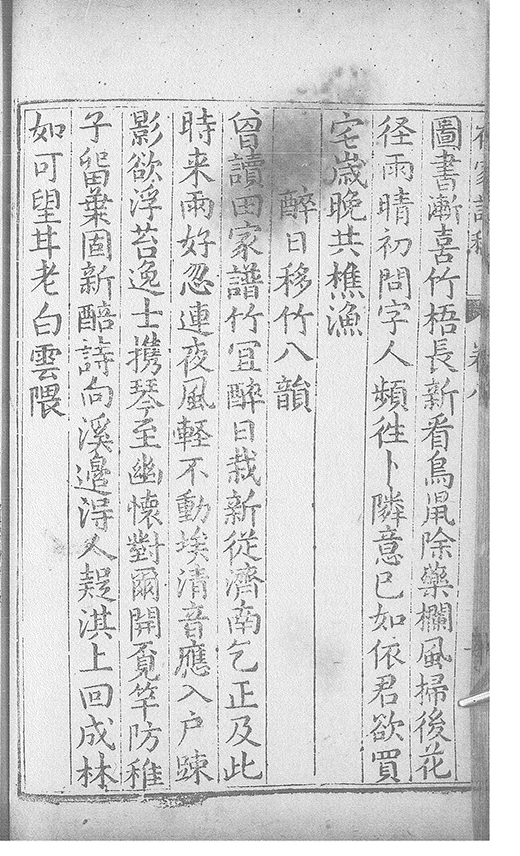 圖書漸喜竹梧長新看鳥鼡除藥欄風掃後花
径雨晴初問字人頻徃卜隣意已如依君欲買
宅歳晚共樵漁
醉日移竹八韻
曾讀田家譜竹宜醉日栽新從濟南乞正及此
時来雨好忽連夜風軽不動埃清音應入户踈
影欲浮苔逸士携琴至幽懷對爾開覔竿防稚
子留葉固新醅詩向溪邉淂人疑淇上回成林
如可望耳老白雲隈